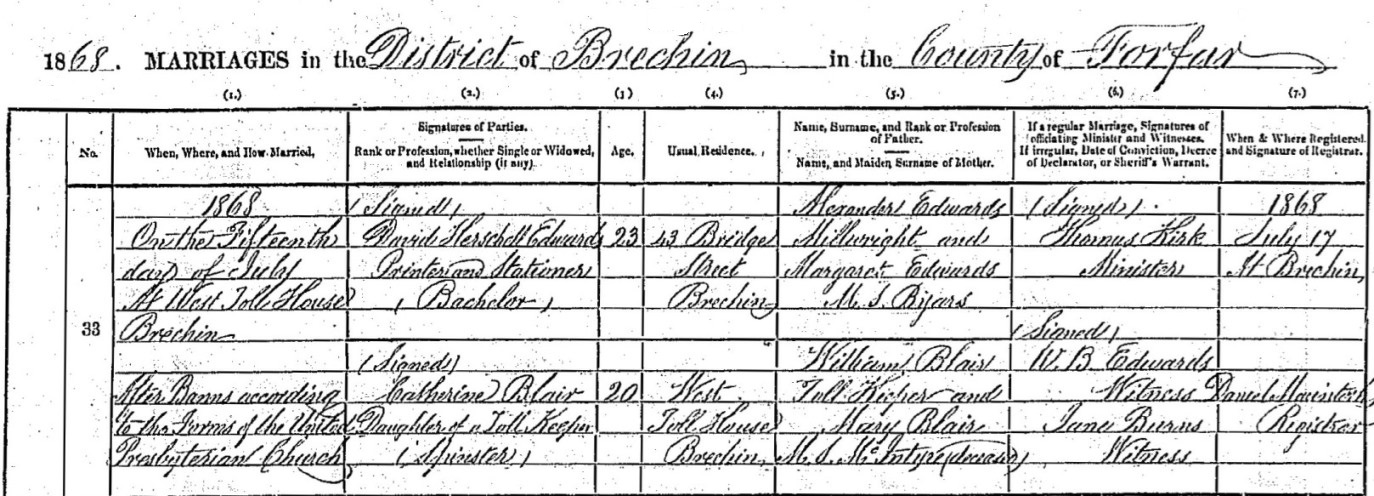 1868. MARRIAGES in the District of Brechin in the County of Forfar
(1.) (2.) (3) (4.) (5.) (6.) (7.)
No.
When, Where, and How Married.
Signatures of Parties.
Rank or Profession, whether Single or Widowed,
and Relationship (if any).
Age.
Usual Residence.
Name, Surname, and Rank or Profession
of Father.
Name, and Maiden Surname of Mother.
If a regular Marriage, Signatures of
officiating Minister and Witnesses.
If irregular, Date of Conviction, Decree
of Declarator, or Sheriff's Warrant.
When & Where Registered
and Signature of Registrar.
33
1868
On the Fifteenth
day of July
At West Toll House
Brechin
After Banns according
to the Forms of the United
Presbyterian Church
(Signed)
David Herschell Edwards
Printer and Stationer
(Bachelor)
(Signed)
Catherine Blair
Daughter of a Toll Keeper
(Spinster)
23
20
43 Bridge
Street
Brechin
West
Toll House
Brechin
Alexander Edwards
Millwright and
Margaret Edwards
M. S. Bijars
William Blair
Toll Keeper and
Mary Blair
M. S. McIntyre (deceased)
(Signed)
Thomas Kirk
Minister
(Signed)
W. B. Edwards
Witness
Jane Burns
Witness
1868
July 17
At Brechin
Daniel Macintosh
Registrar